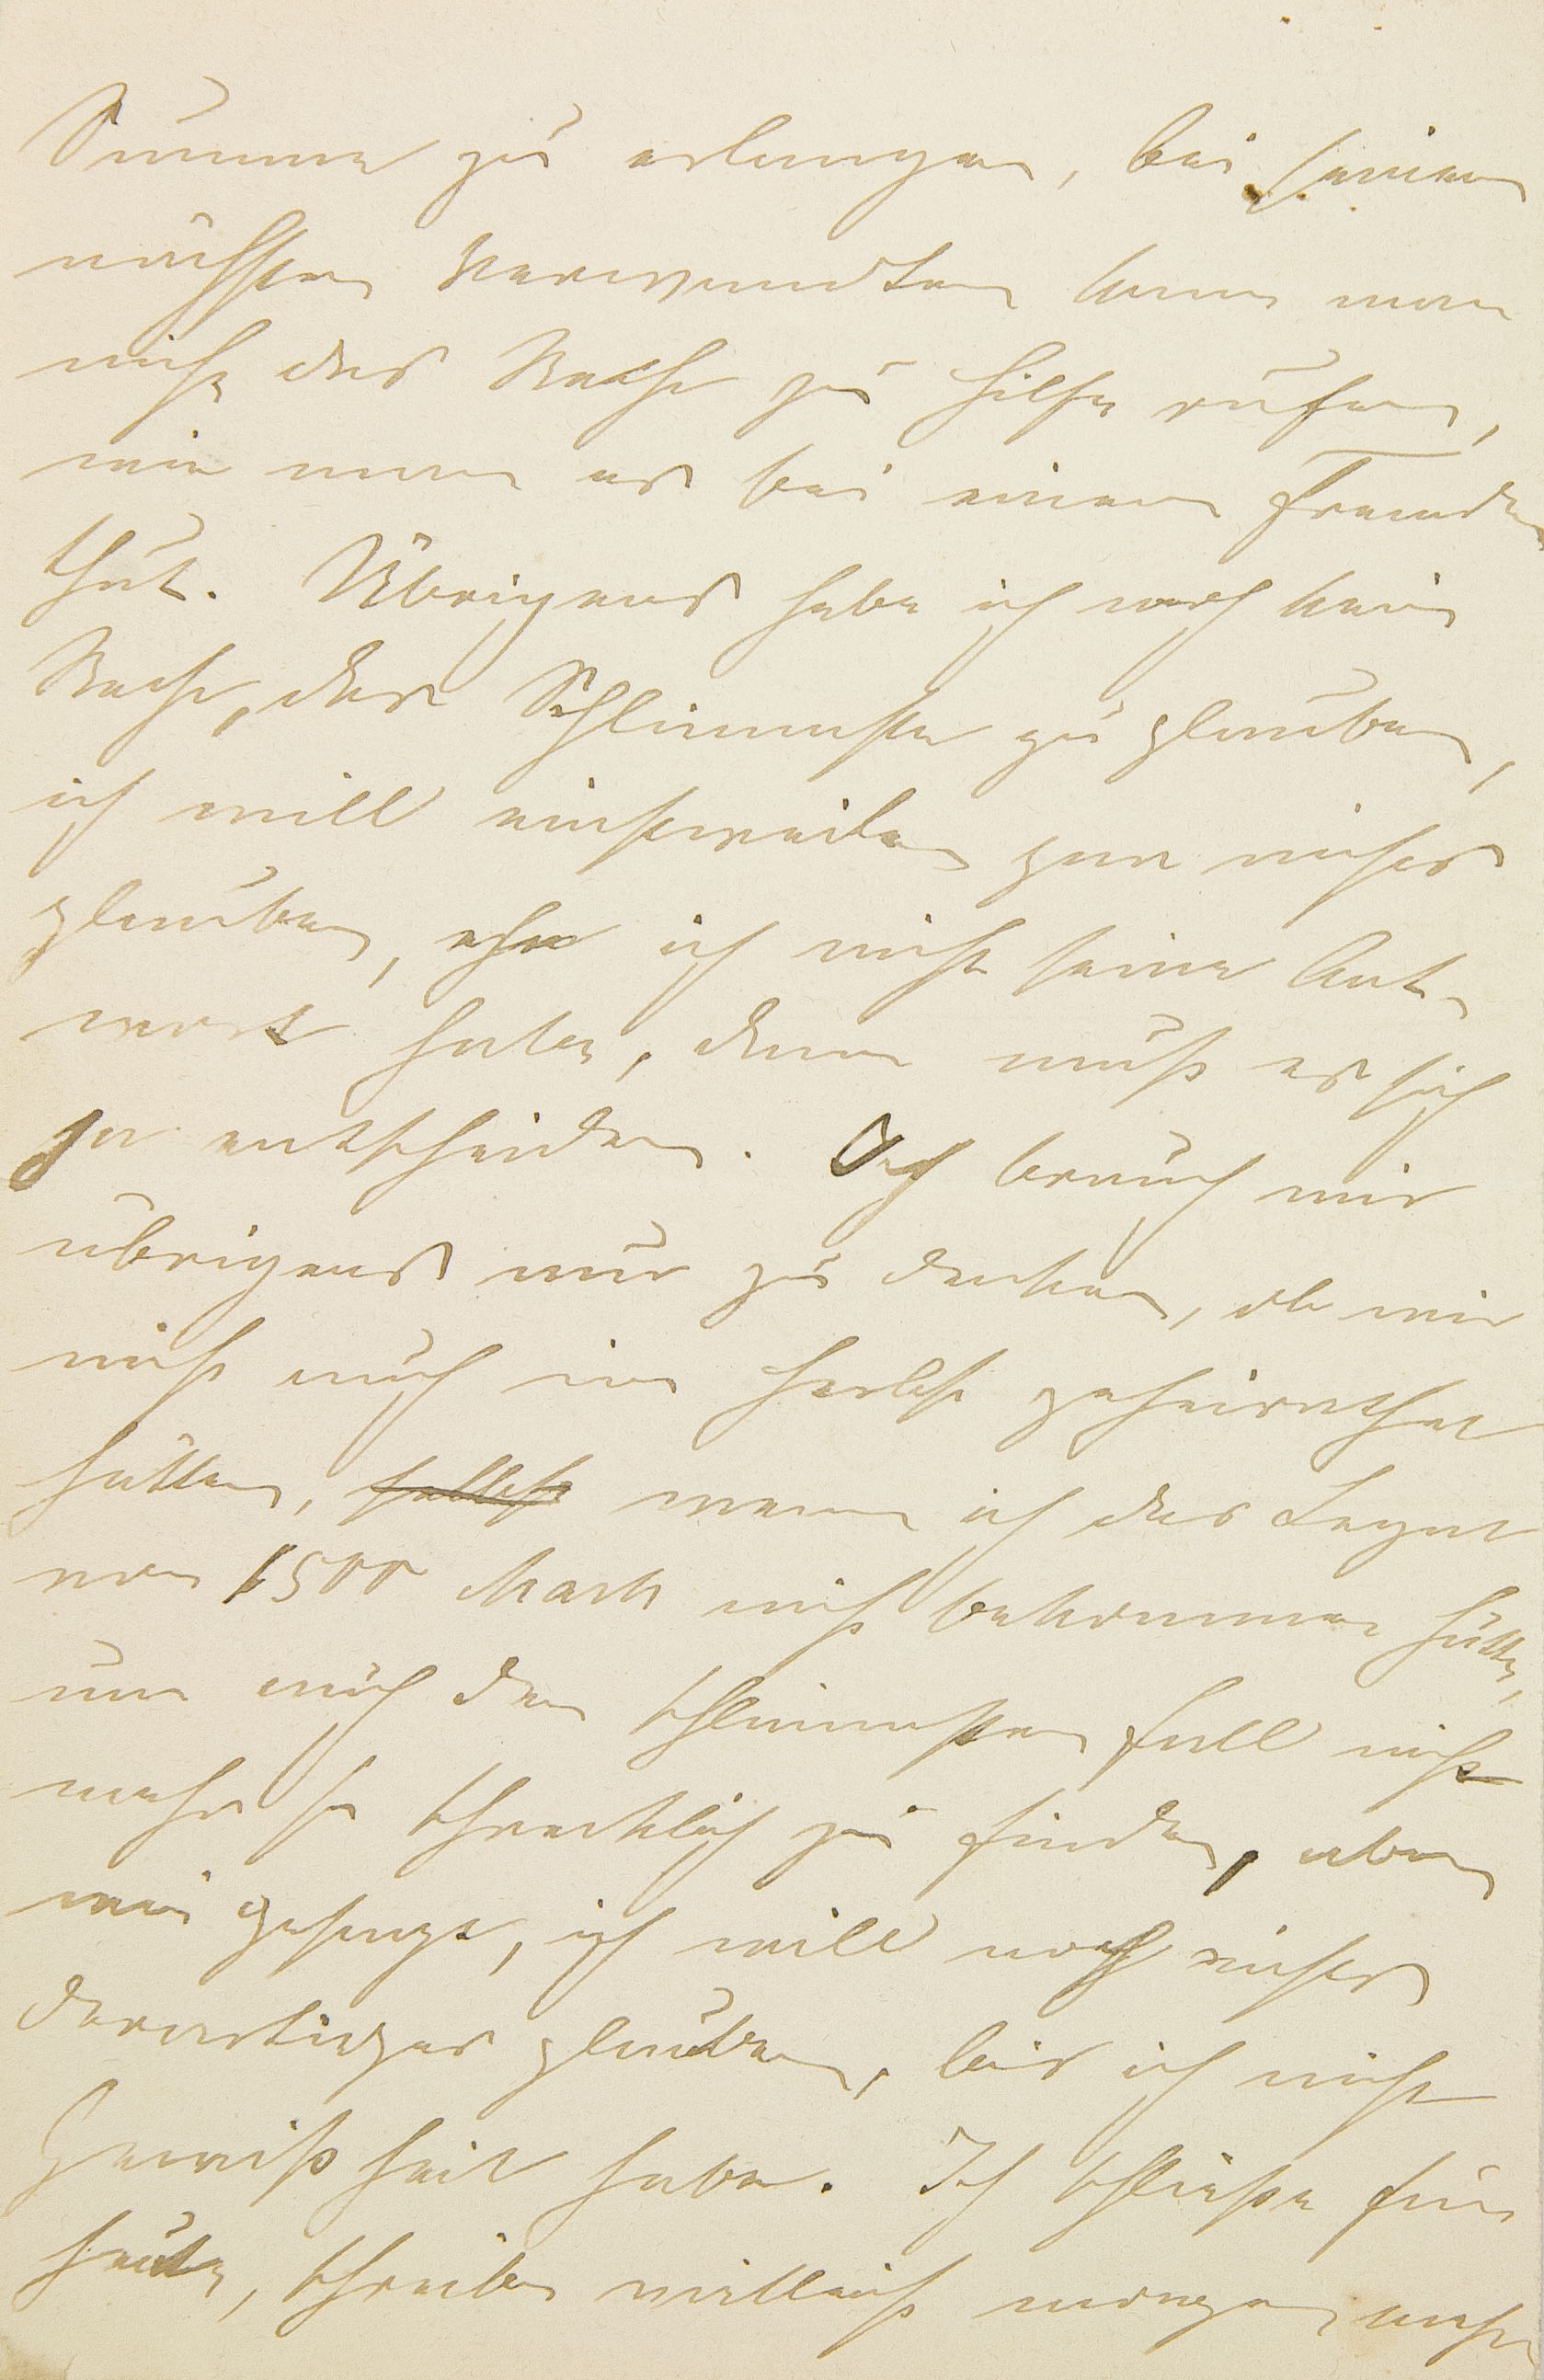 Summe zu erlangen, bei seinen
nächsten Verwandten kann man
nicht das Recht zu Hilfe rufen,
wie man es bei einem Fremden
thut. Übrigens habe ich noch kein
Recht, das Schlimmste zu glauben,
ich will einstweilen gar nichts
glauben, ehe ich nicht seine Ant-
wort habe, dann muß es sich
ja entscheiden. Ich brauch mir
übrigens nur zu denken, ob wir
nicht auch im Herbst geheirathet
hätten, selbst wenn ich das Legat
von 1500 Mark nicht bekommen hätte,
um auch den schlimmsten Fall nicht
mehr so schrecklich zu finden, aber
wie gesagt, ich will noch nichts
derartiges glauben, bis ich nicht
Gewißheit habe. Ich schließe für
heute, schreibe vielleicht morgen mehr